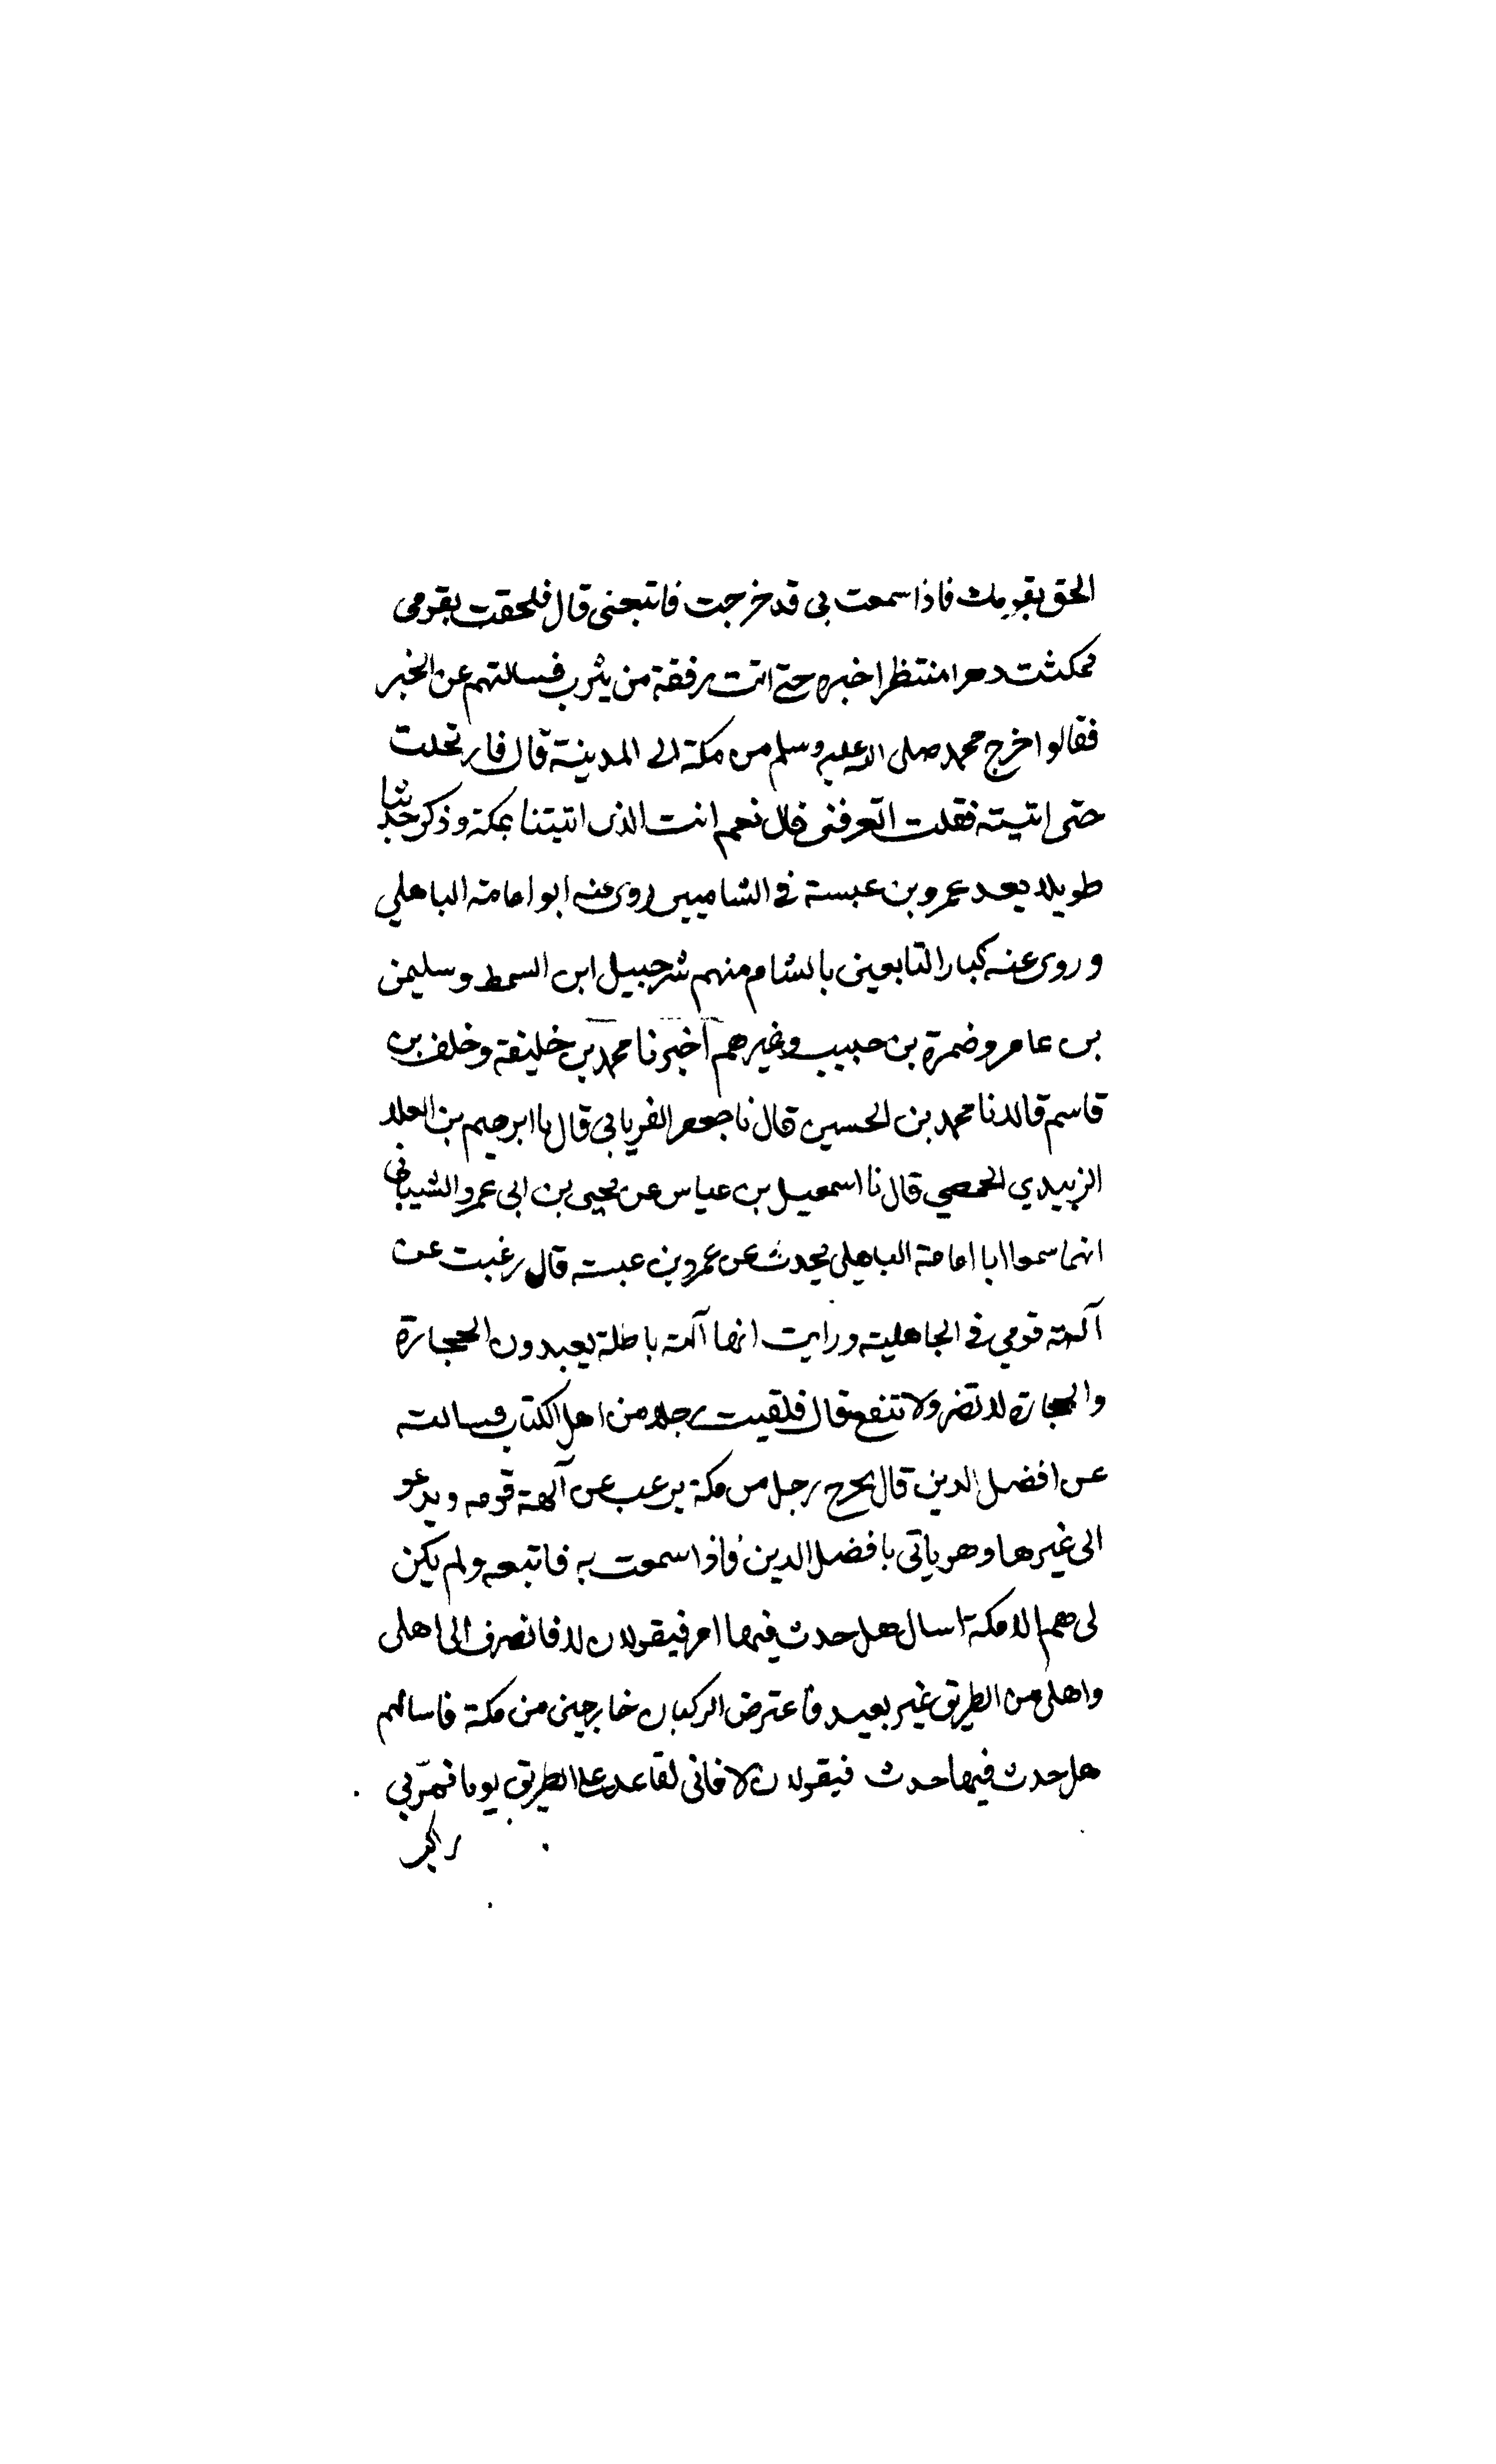 الحق بقومك فاذا سمعت بى قد خرجت فاتبعنى قال فلحقت بقومى
فمكثت دهرا منتظرا خبره حتى اتت رفقة من يثرب فسالتهم عن الخبر
فقالوا خرج محمد صلى الله عليه وسلم من مكة الى المدينة قال فارتحلت
حتى اتيته فقلت اتعرفنى قال نعم انت الذى اتيتنا بمكة وذكر حديثا
طويلا يعد عمرو بن عبسة فى الشاميين روى عنه ابو امامة الباهلي
وروى عنه كبار التابعين بالشام منهم شرحبيل ابن السمط وسليمن
بن عامر وضمرة بن حبيب وغيرهم اخبرنا محمد بن خليفة وخلف بن
قاسم قالا نا محمد بن الحسين قال نا جعفر الفريابى قال نا ابرهيم بن العلا
الزبيدي الحمصي قال نا اسمعيل بن عياس عن يحيى بن ابى عمرو الشيبانى
انهما سمعا ابا امامة الباهلى يحدث عن عمرو بن عبسة قال رغبت عن
آلهة قومي فى الجاهلية ورايت انها آلهة باطلة يعبدون الحجارة
والحجارة لا تضر ولا تنفع قال فلقيت رجلا من اهل الكتاب فسالته
عن افضل الدين قال يخرج رجل من مكة يرغب عن آلهة قومه ويدعو
الى غيرها وهو ياتى بافضل الدين فاذا سمعت به فاتبعه ولم يكن
لى هم الا مكة اسال هل حدث فيها امر فيقولان لا فانصرف الى اهلى
واهلى من الطريق غير بعيد فاعترض الركبان خارجين من مكة فاسالهم
هل حدث فيها حدث فيقولان لا فانى لقاعد على الطريق يوما فمرّ بى
راكب